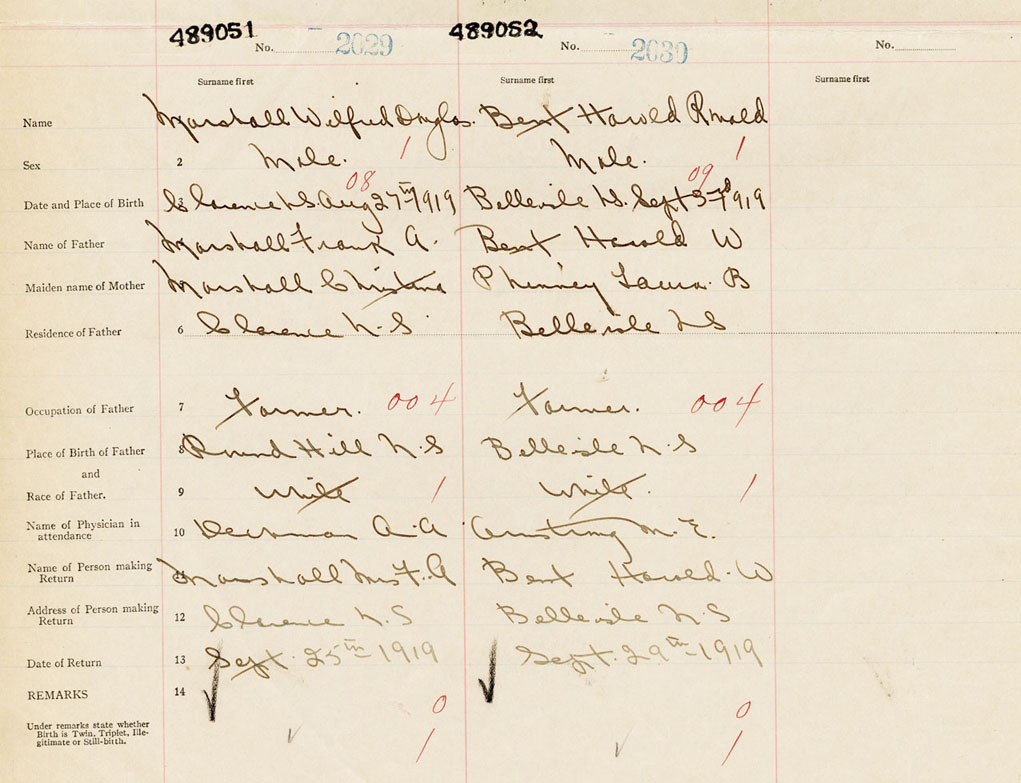 489051 489052
No. 2029 No. 2030 No.
Surname first Surname first Surname first
Name Marshall Wilfred Douglas. Bent Harold Ronald
Sex 2 Male. 1 Male. 1
08 09
Date and Place of Birth Clarence N.S. Aug 27th 1919 Belleisle N.S. Sept 3rd 1919
Name of Father Marshall Frank A. Bent Harold W
Maiden name of Mother Marshall Christina Phinney Laura B
Residence of Father 6 Clarence N-S Belleisle N S
Occupation of Father 7 Farmer. 004 Farmer. 004
Place of Birth of Father 8 Round Hill N-S Belleisle N-S
and
Race of Father. 9 White 1 White. 1
Name of Physician in
attendance 10 A-A Armstrong M-E.
Name of Person making
Return 11 Marshall Mrs F. A Bent Harold-W
Address of Person making
Return 12 Clarence N.S Belleisle N-S
Date of Return 13 Sept. 25th-1919 Sept. 29th-1919
REMARKS 14
0 0
Under remarks state whether
Birth is Twin, Triplet, Ille-
gitimate or Still-birth.
1 1